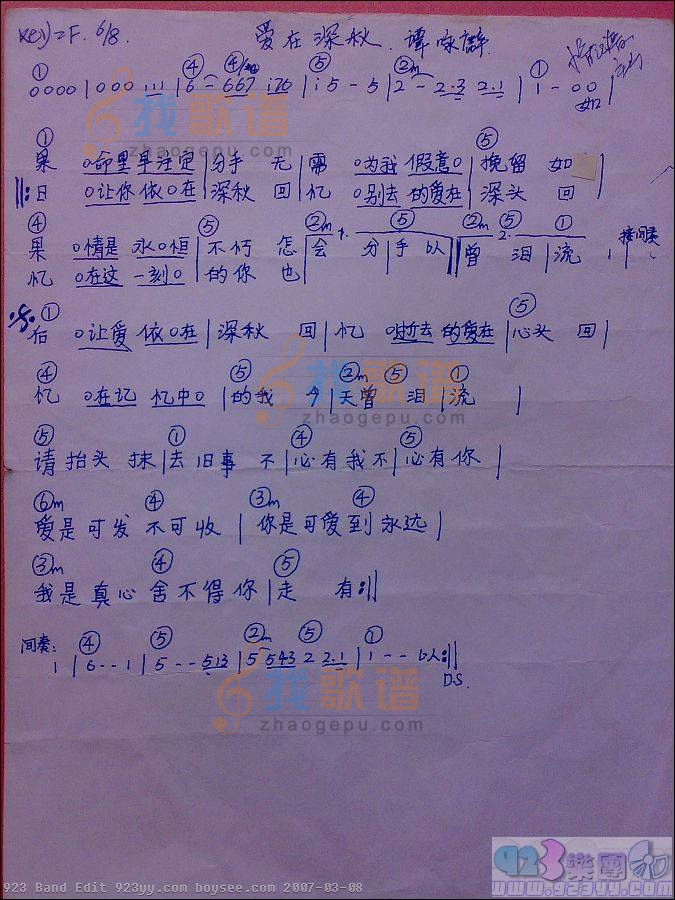 Key=F. 6/8. 爱在深秋. 谭咏麟
① ④ ④/ ⑤ ②m ①
0000 | 000 111 | 6 - 667 i76 | i 5 - 5 | 2 - 2·3 2·1 | 1 - 00 |
如
① ⑤
果 0命里早注定 | 分手 无 | 需 0为我 假意0 | 挽留 如 |
日 0让你 依0在 | 深秋 回 | 忆 0别去 的爱在 | 深头 回 |
④ ⑤ ②m 1. ⑤ ②m 2. ⑤ ①
果 0情是 永0恒 | 不朽 怎 | 会 分手以 | 曾 泪 | 流 , | 接间奏
忆 0在这 一刻0 | 的你 也 |
① ⑤
后 0让爱 依0在 | 深秋 回 | 忆 0逝去 的爱在 | 心头 回 |
④ ⑤ ②m ⑤ ①
忆 0在记 忆中0 | 的我 今 | 天曾 泪 | 流 |
⑤ ① ④ ⑤
请抬头 抹 | 去旧事 不 | 心有我不 | 心有你 |
⑥m ④ ③m ④
爱是可发不可收 | 你是可爱到永远 |
③m ④ ⑤
我是真心舍不得你 | 走 有 :||
间奏: ④ ⑤ ②m ⑤ ①
1 | 6 - - 1 | 5 - - 513 | 5 543 2 2·1 | 1 - - 以 :||
D.S.
找歌谱
zhaogepu.com
找歌谱
zhaogepu.com
找歌谱
zhaogepu.com
923 Band Edit 923yy.com boysee.com 2007-03-08
923樂團
www.923yy.com